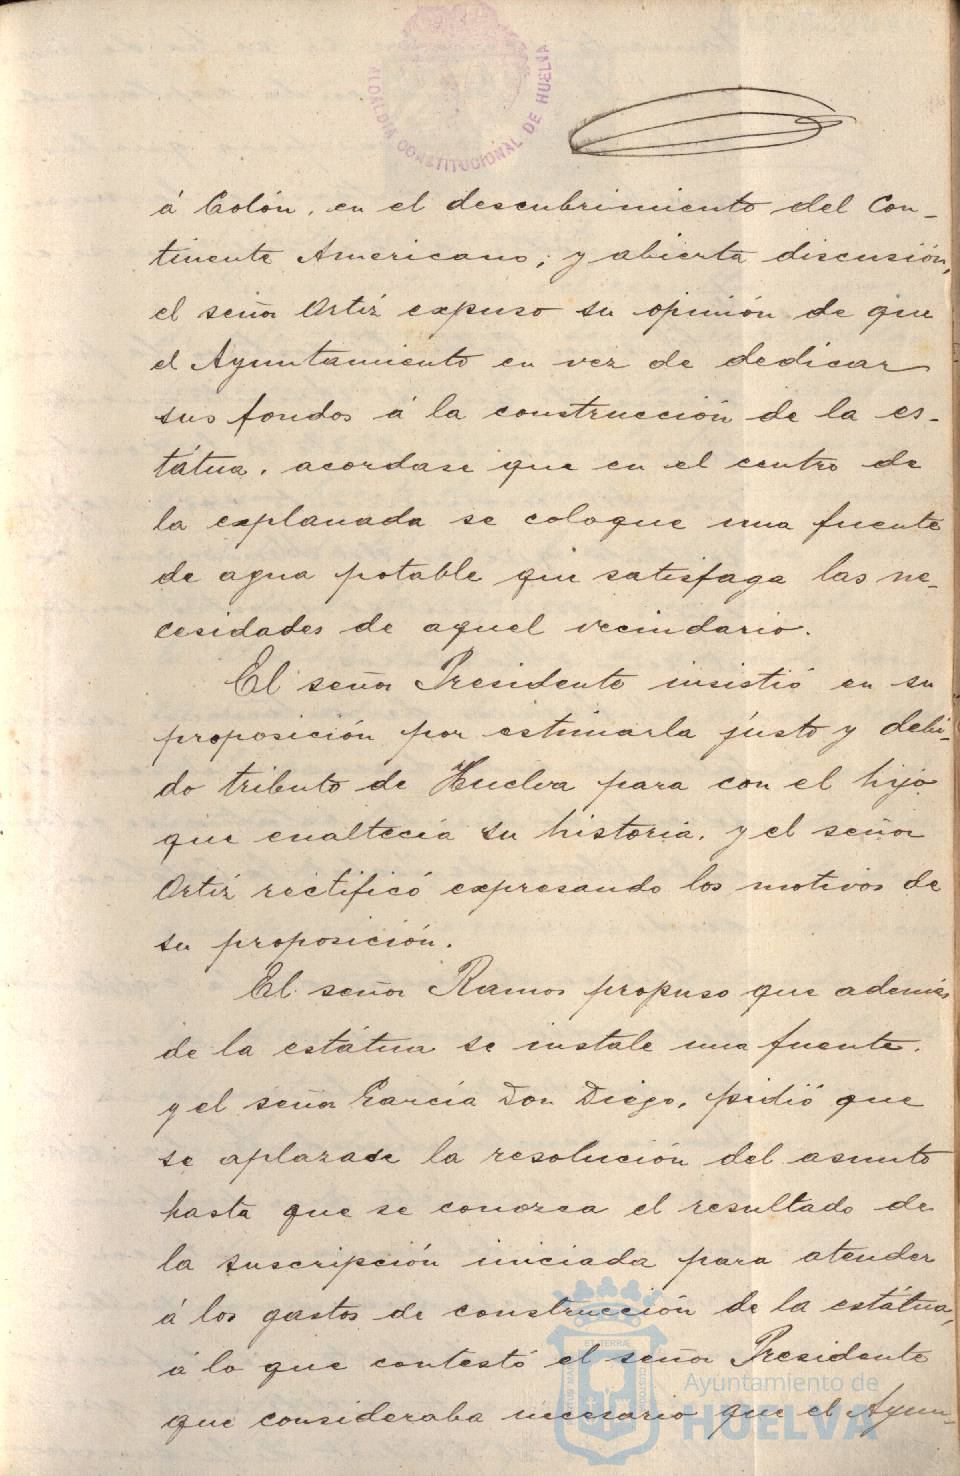 ALCALDIA CONSTITUCIONAL DE HUELVA
á Colón, en el descubrimiento del Con-
tinente Americano; y abierta discusión,
el señor Ortiz expuso su opinión de que
el Ayuntamiento en vez de dedicar
sus fondos á la construcción de la es-
tátua, acordase que en el centro de
la explanada se coloque una fuente
de agua potable que satisfaga las ne-
cesidades de aquel vecindario.
El señor Presidente insistió en su
proposición por estimarla justo y debi-
do tributo de Huelva para con el hijo
que enaltecía su historia, y el señor
Ortiz rectificó expresando los motivos de
su proposición.
El señor Ramos propuso que además
de la estátua se instale una fuente,
y el señor García Don Diego, pidió que
se aplazase la resolución del asunto
hasta que se conozca el resultado de
la suscripción iniciada para atender
á los gastos de construcción de la estátua,
á lo que contestó el señor Presidente
que consideraba necesario que el Ayun-
Ayuntamiento de
HUELVA